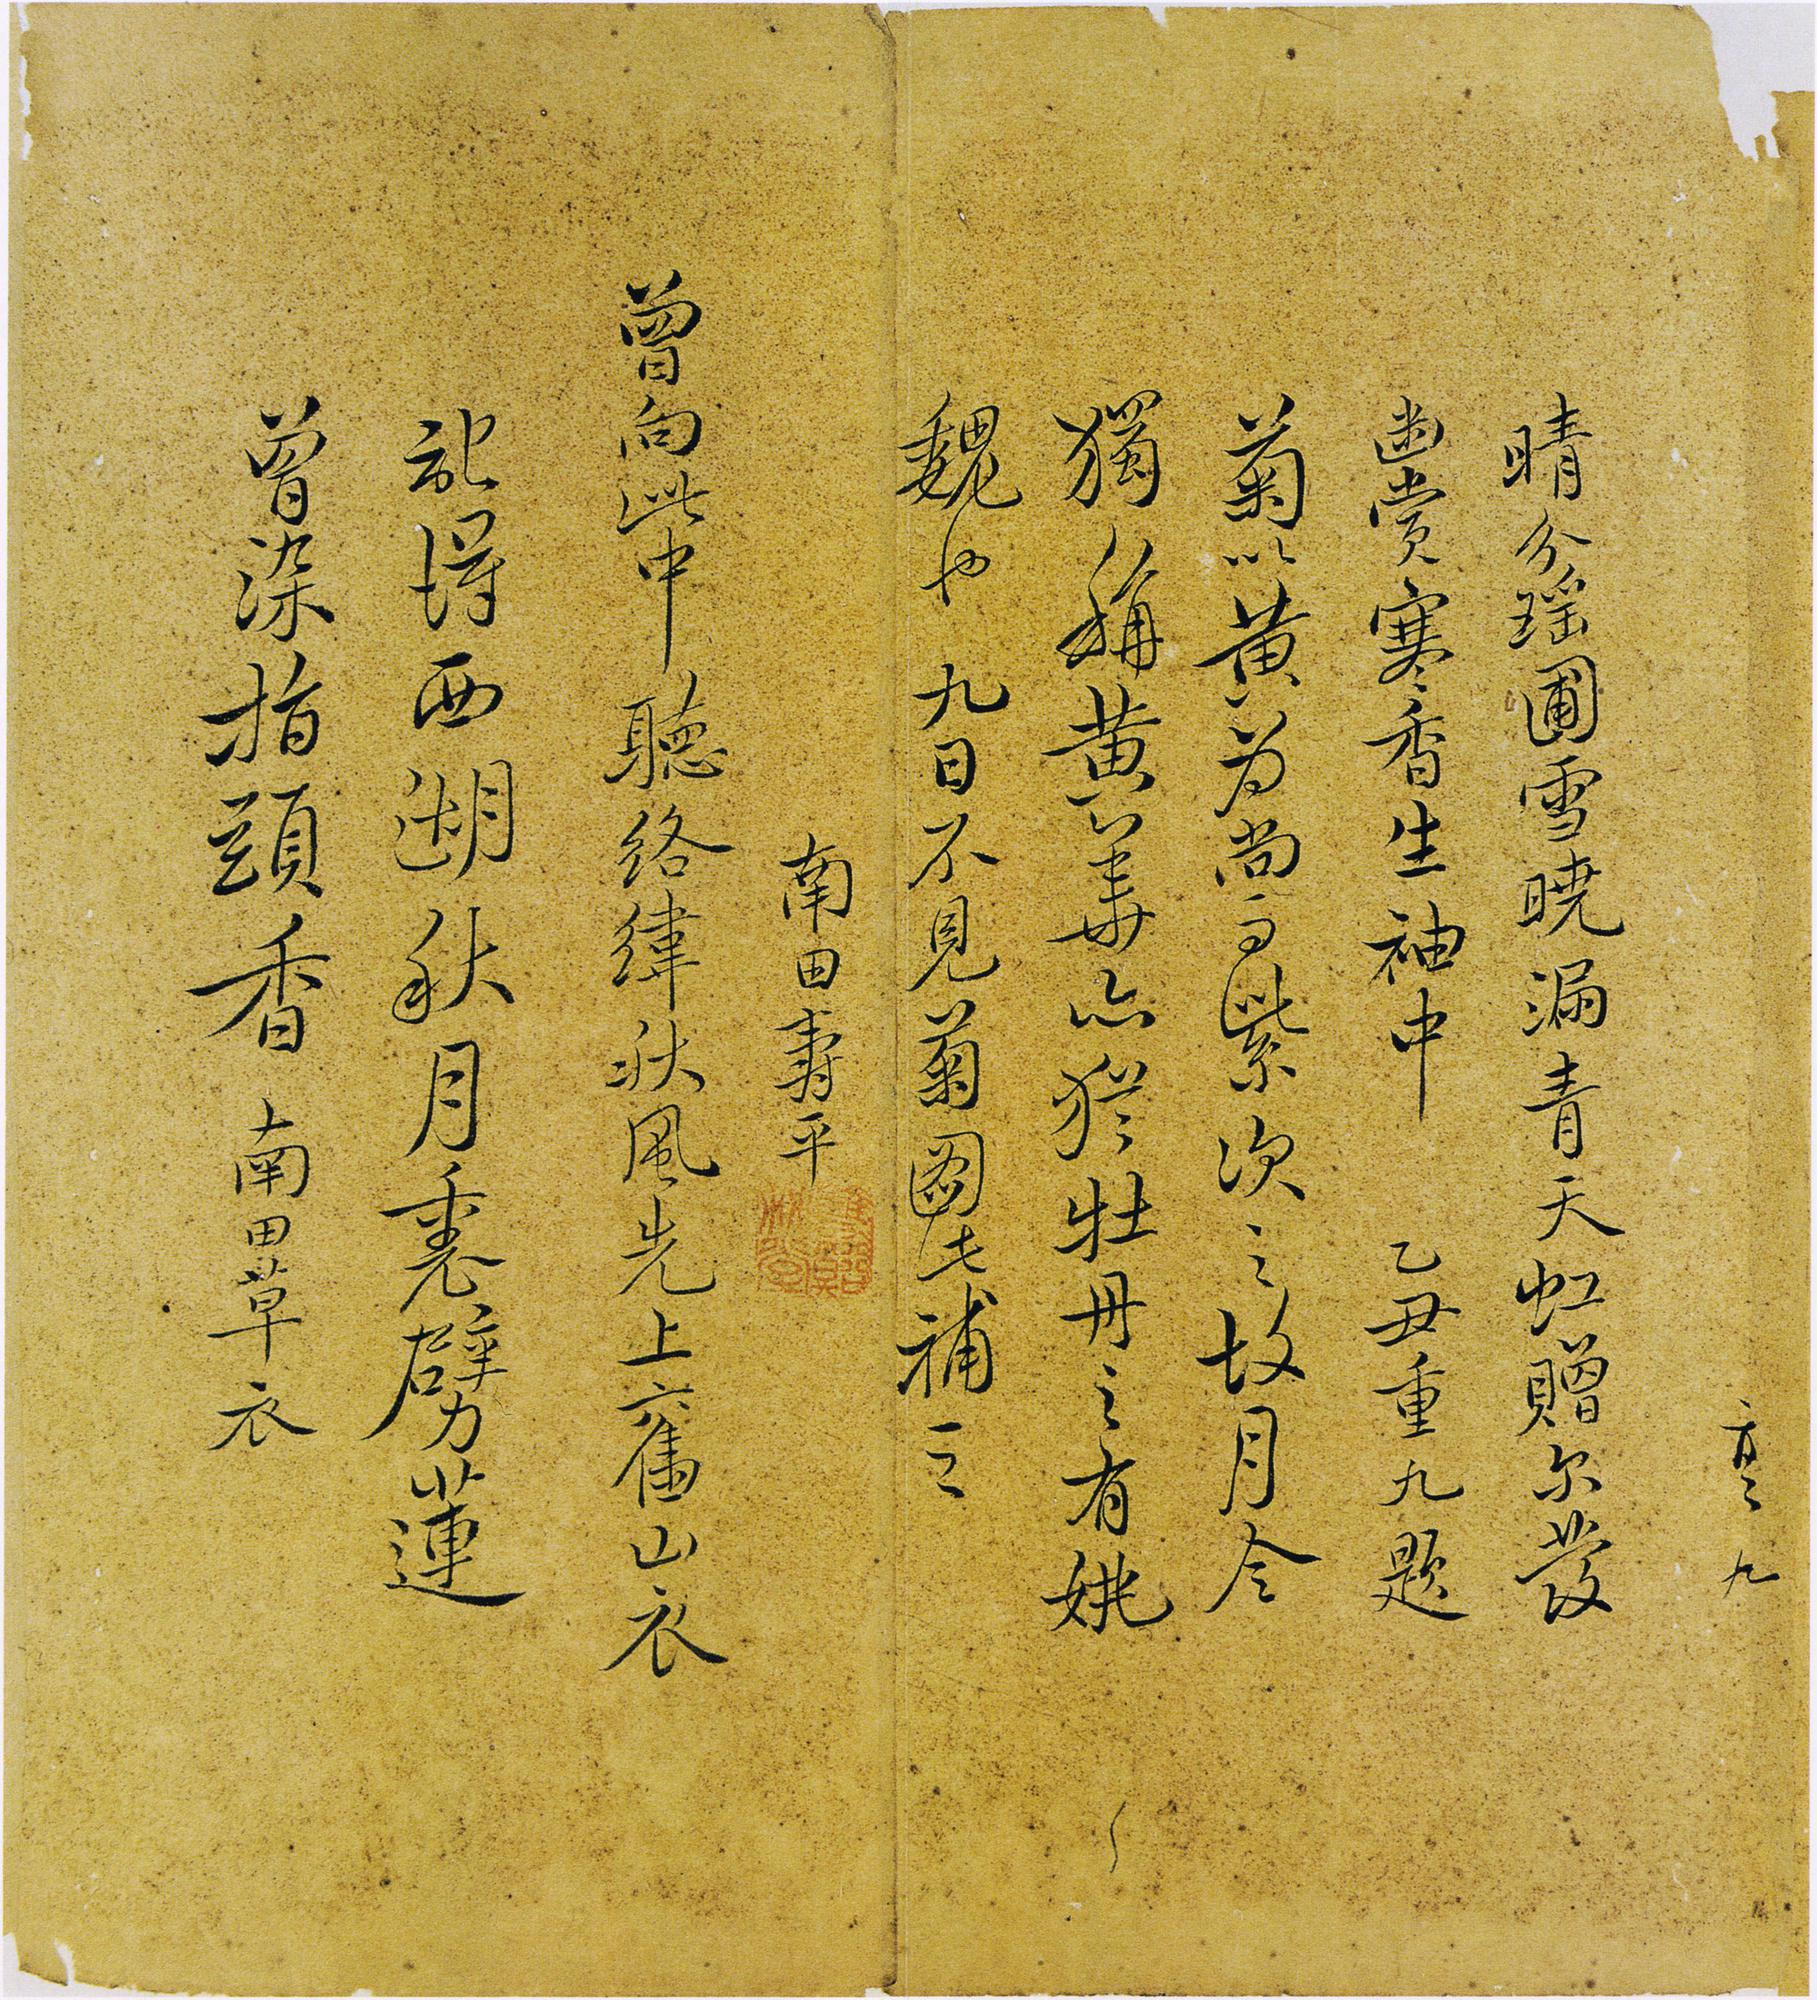 晴分瑶圃雪曉漏青天虹贈尔發
幽赏寒香生袖中 乙丑重九題
菊以黄为尚而紫次之故月令
獨稱黄華亦猶牡丹之有姚
魏也 九日不見菊圖此補之
南田壽平
曾向此中聽絡緯秋風先上舊山衣
記得西湖秋月裏劈蓮
曾染指頭香 南田草衣